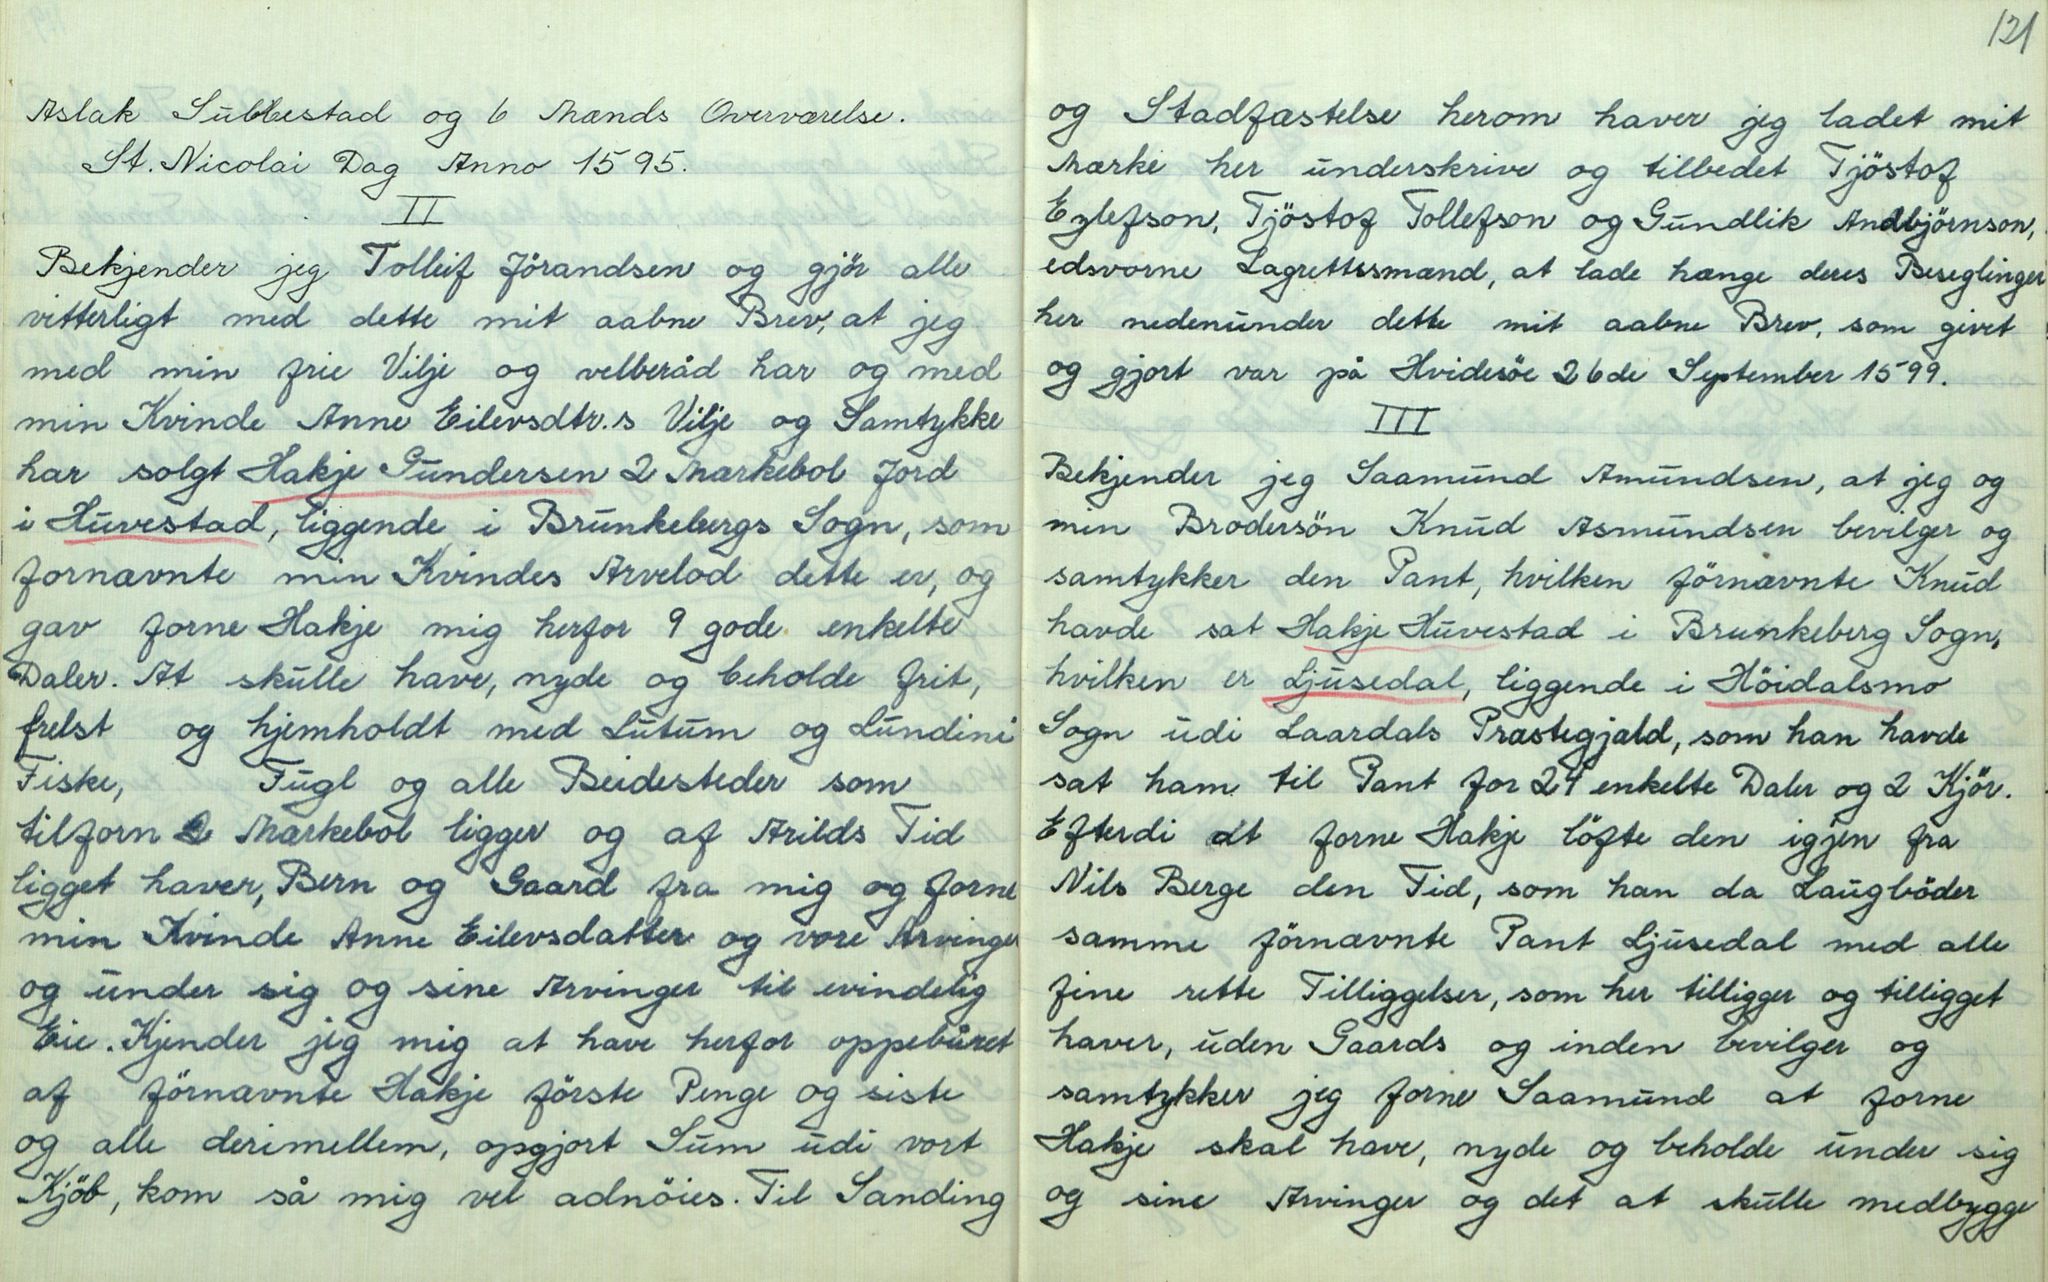 Aslak Subbestad og 6 Mænds Overværelse.
St. Nicolai Dag Anno 1595.
II
Bekjender jeg Tolleif Jörandsen og gjör alle
vitterligt med dette mit aabne Brev, at jeg
med min frie Vilje og velberåd har og med
min Kvinde Anne Eilevsdtr.s Vilje og Samtykke
har solgt Hakje Gundersen 2 Markebol Jord
i Huvestad, liggende i Brunkebergs Sogn, som
fornævnte min Kvindes Arvelod dette er, og
gav forne Hakje mig herfor 9 gode enkelte
Daler. At skulle have, nyde og beholde frit,
frelst og hjemholdt med Lutum og Lundini
Fiske, Fugl og alle Beidesteder som
tilforn 2 Markebol ligger og af Arilds Tid
ligget haver, Bern og Gaard fra mig og forne
min Kvinde Anne Eilevsdatter og vore Arvinger
og under sig og sine Arvinger til evindelig
Eie. Kjender jeg mig at have herfor oppebåret
af förnævnte Hakje förste Penge og siste
og alle derimellem, opgjort Sum udi vort
Kjöb, kom så mig vel adnöies. Til Sanding
121
og Stadfæstelse herom haver jeg ladet mit
Mærke her underskrive og tilbedet Tjöstof
Eylefson, Tjöstof Tollefson og Gundlik Andbjörnson,
edsvorne Lagrettssmænd, at lade hænge deres Beseglinger
her nedenunder dette mit aabne Brev, som givet
og gjort var på Hvidesöe 26de September 1599.
III
Bekjender jeg Saamund Amundsen, at jeg og
min Brodersön Knud Asmundsen bevilger og
samtykker den Pant, hvilken förnævnte Knud
havde sat Hakje Huvestad i Brunkeberg Sogn,
hvilken er Ljusedal, liggende i Höidalsmo
Sogn udi Laardals Præstegjæld, som han havde
sat ham til Pant for 24 enkelte Daler og 2 Kjör.
Efterdi at forne Hakje löfte den igjen fra
Nils Berge den Tid, som han da Laugböder
samme förnævnte Pant Ljusedal med alle
fine rette Tilliggelser, som her tilligger og tilligget
haver, uden Gaards og inden bevilger og
samtykker jeg forne Saamund at forne
Hakje skal have, nyde og beholde under sig
og sine Arvinger og det at skulle medbygge